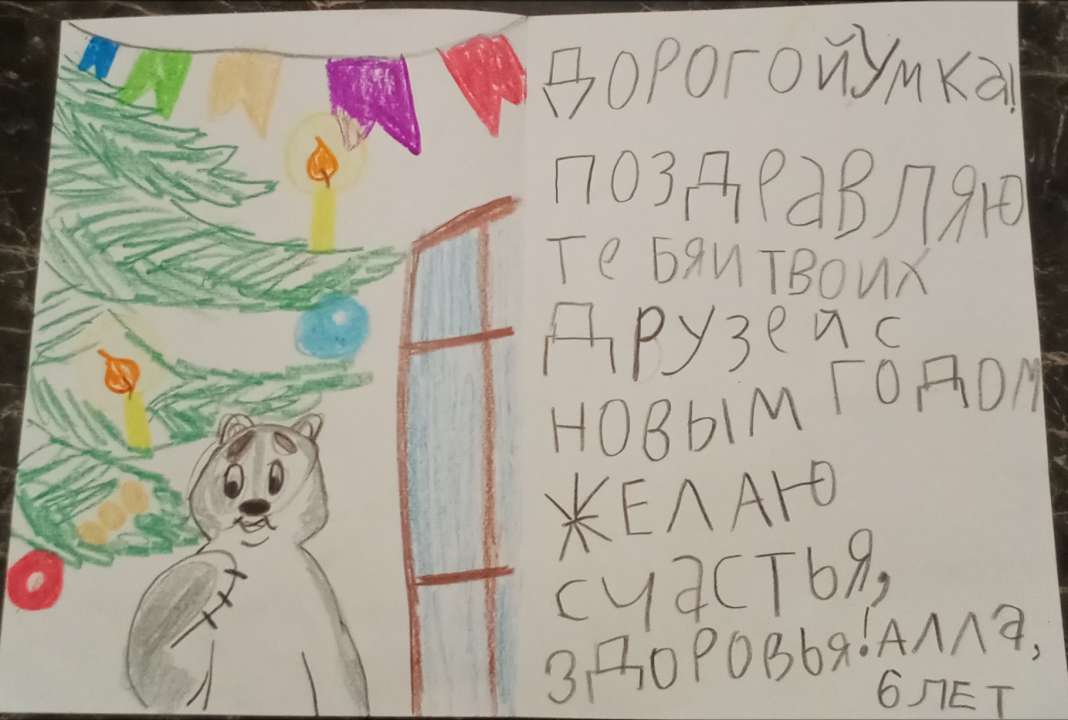 ДОРОГОЙ УМКА!
ПОЗДРАВЛЯЮ
ТЕБЯ И ТВОИХ
ДРУЗЕЙ С
НОВЫМ ГОДОМ
ЖЕЛАЮ
СЧАСТЬЯ,
ЗДОРОВЬЯ! АЛЛА,
6 ЛЕТ